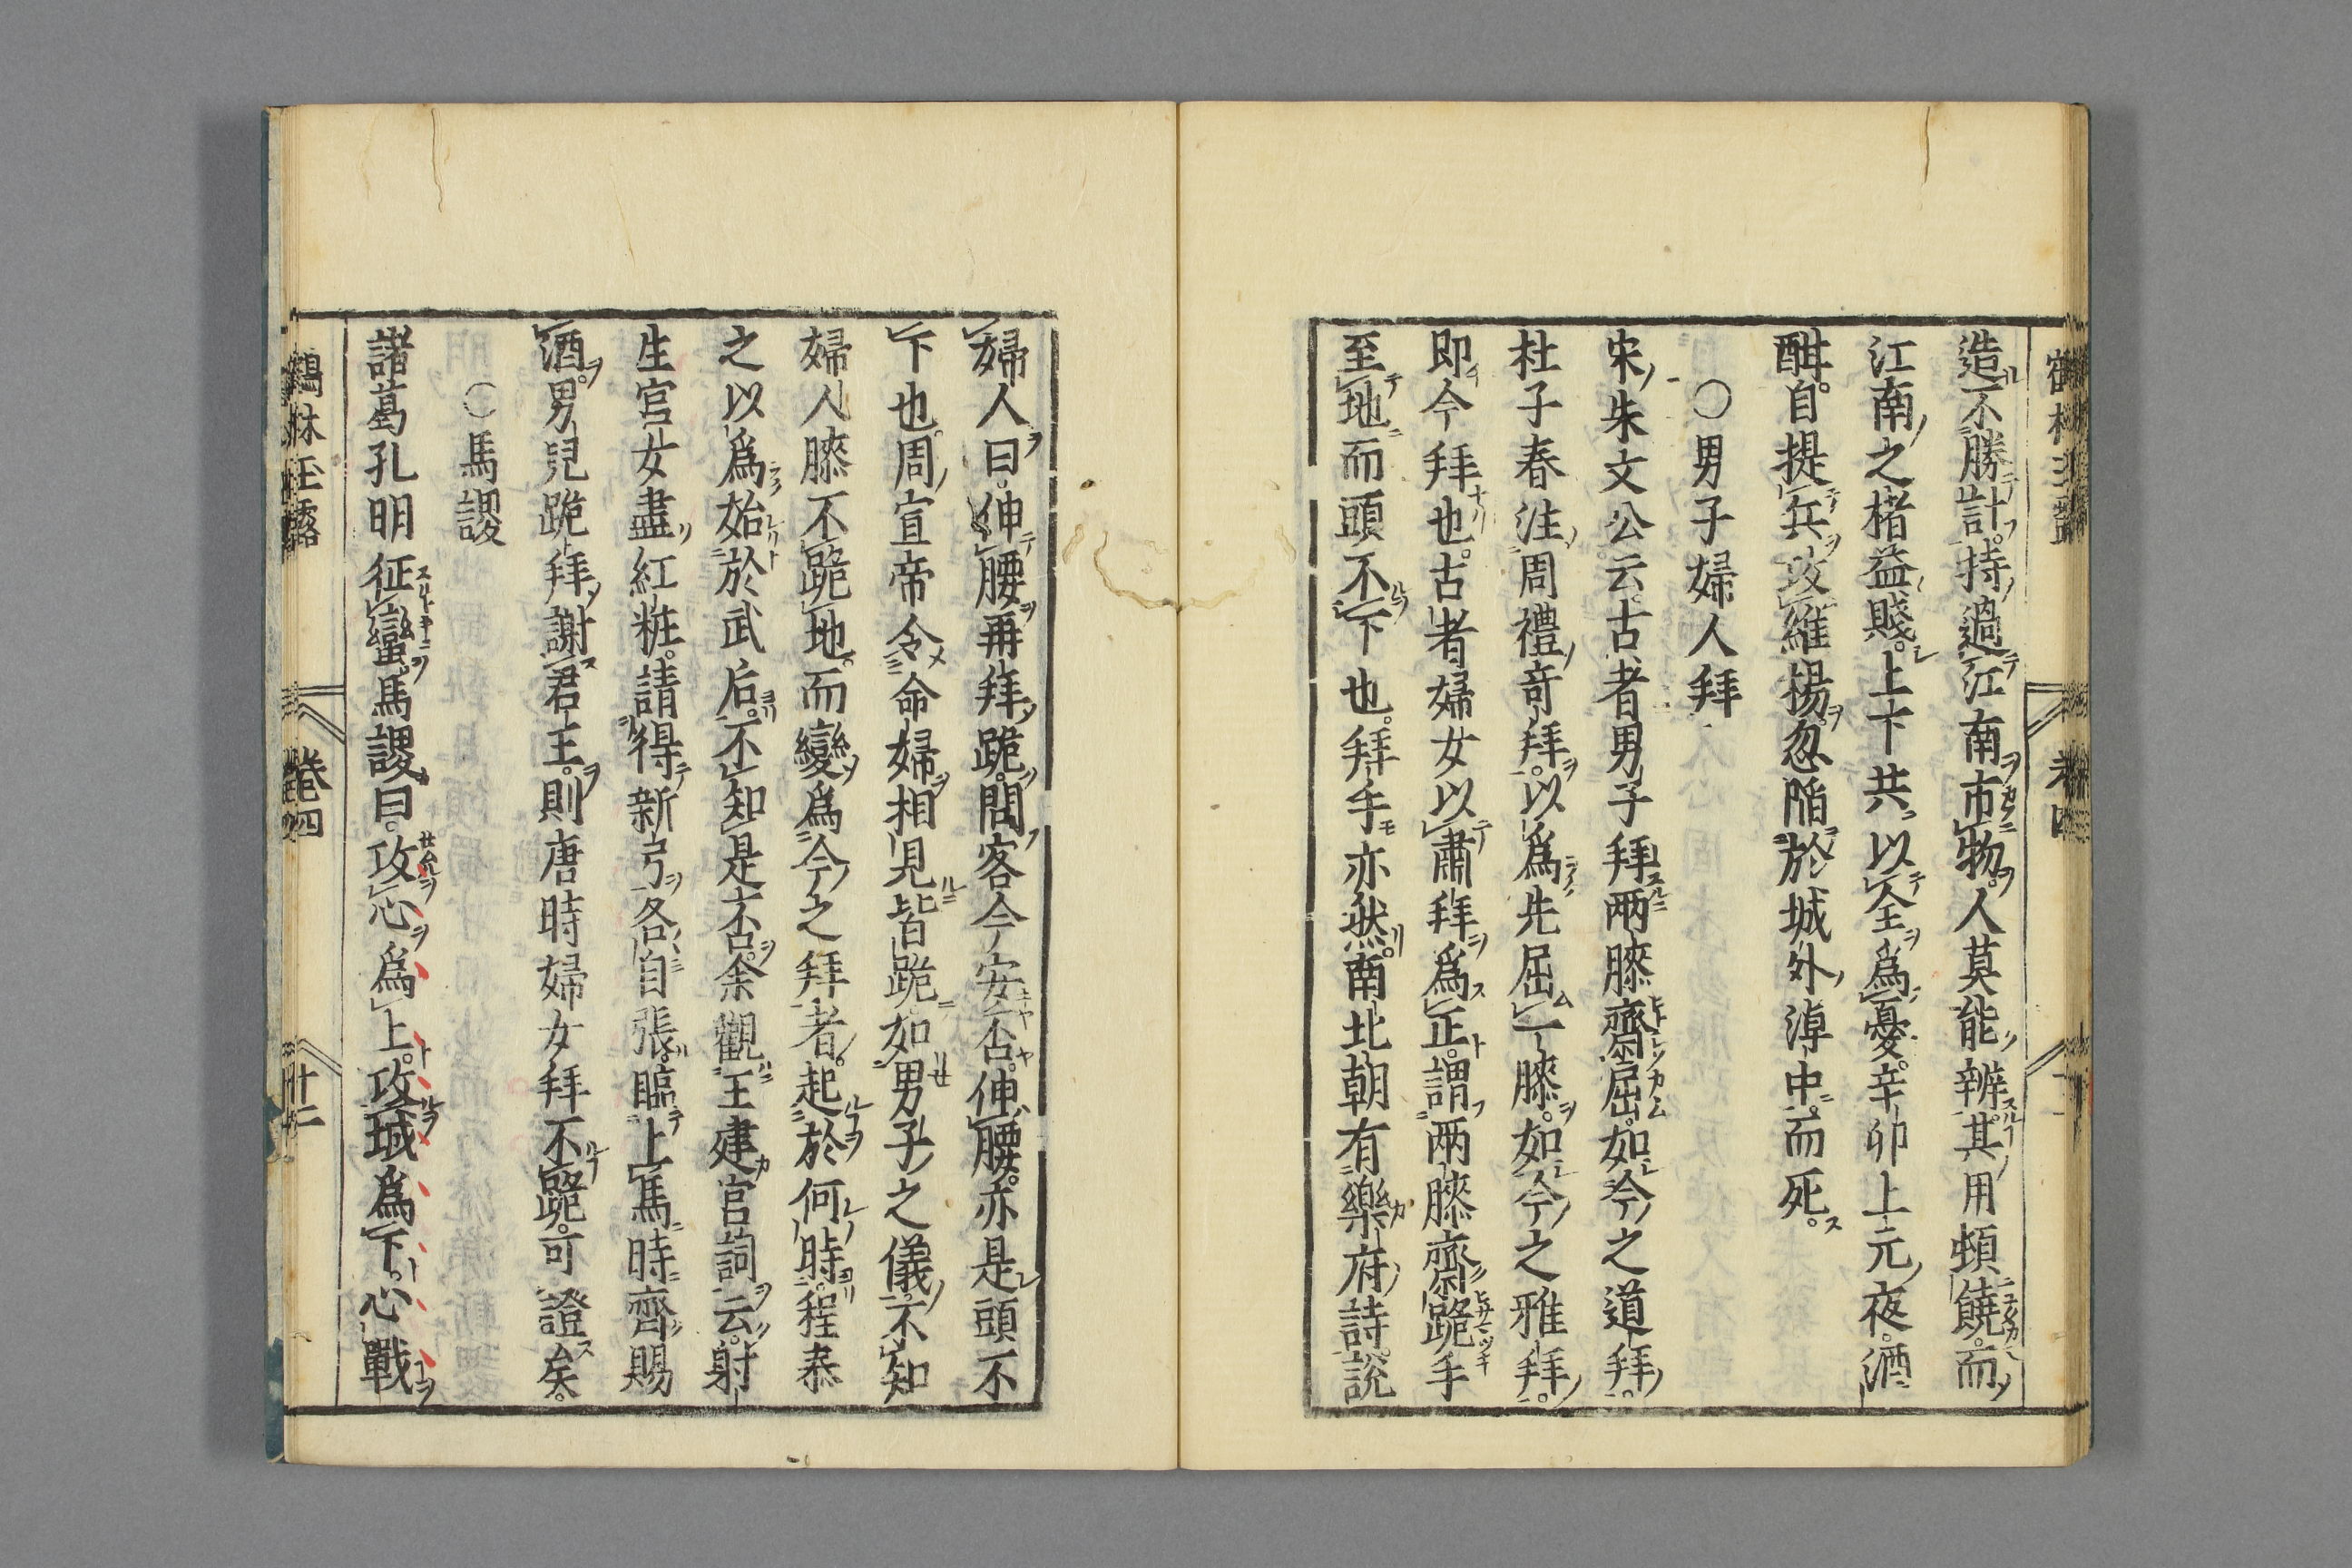 造不勝計持過江南市物人莫能辨其用頓饒而
江南之楮益賤上下共以全爲憂辛卯上元夜酒
酣自提兵攻維揚忽陷於城外淖中而死
○男子婦人拜
宋朱文公云古者男子拜兩膝齊屈如今之道拜
杜子春注周禮竒拜以爲先屈一膝如今之雅拜
即今拜也古者婦女以肅拜爲正謂兩膝齊跪手
至地而頭不下也拜手亦然南北朝有樂府詩説
婦人曰伸腰再拜跪問客今安否伸腰亦是頭不
下也周宣帝令命婦相見皆跪如男子之儀不知
婦人膝不跪地而變爲今之拜者起於何時程泰
之以爲始於武后不知是否余觀王建宫詞云射
生宫女盡紅粧請得新弓各自張臨上馬時齊賜
酒男兒跪拜謝君王則唐時婦女拜不跪可證矣
○馬謖
諸葛孔明征蠻馬謖曰攻心爲上攻城爲下心戰
鶴林玉露 卷四 十二